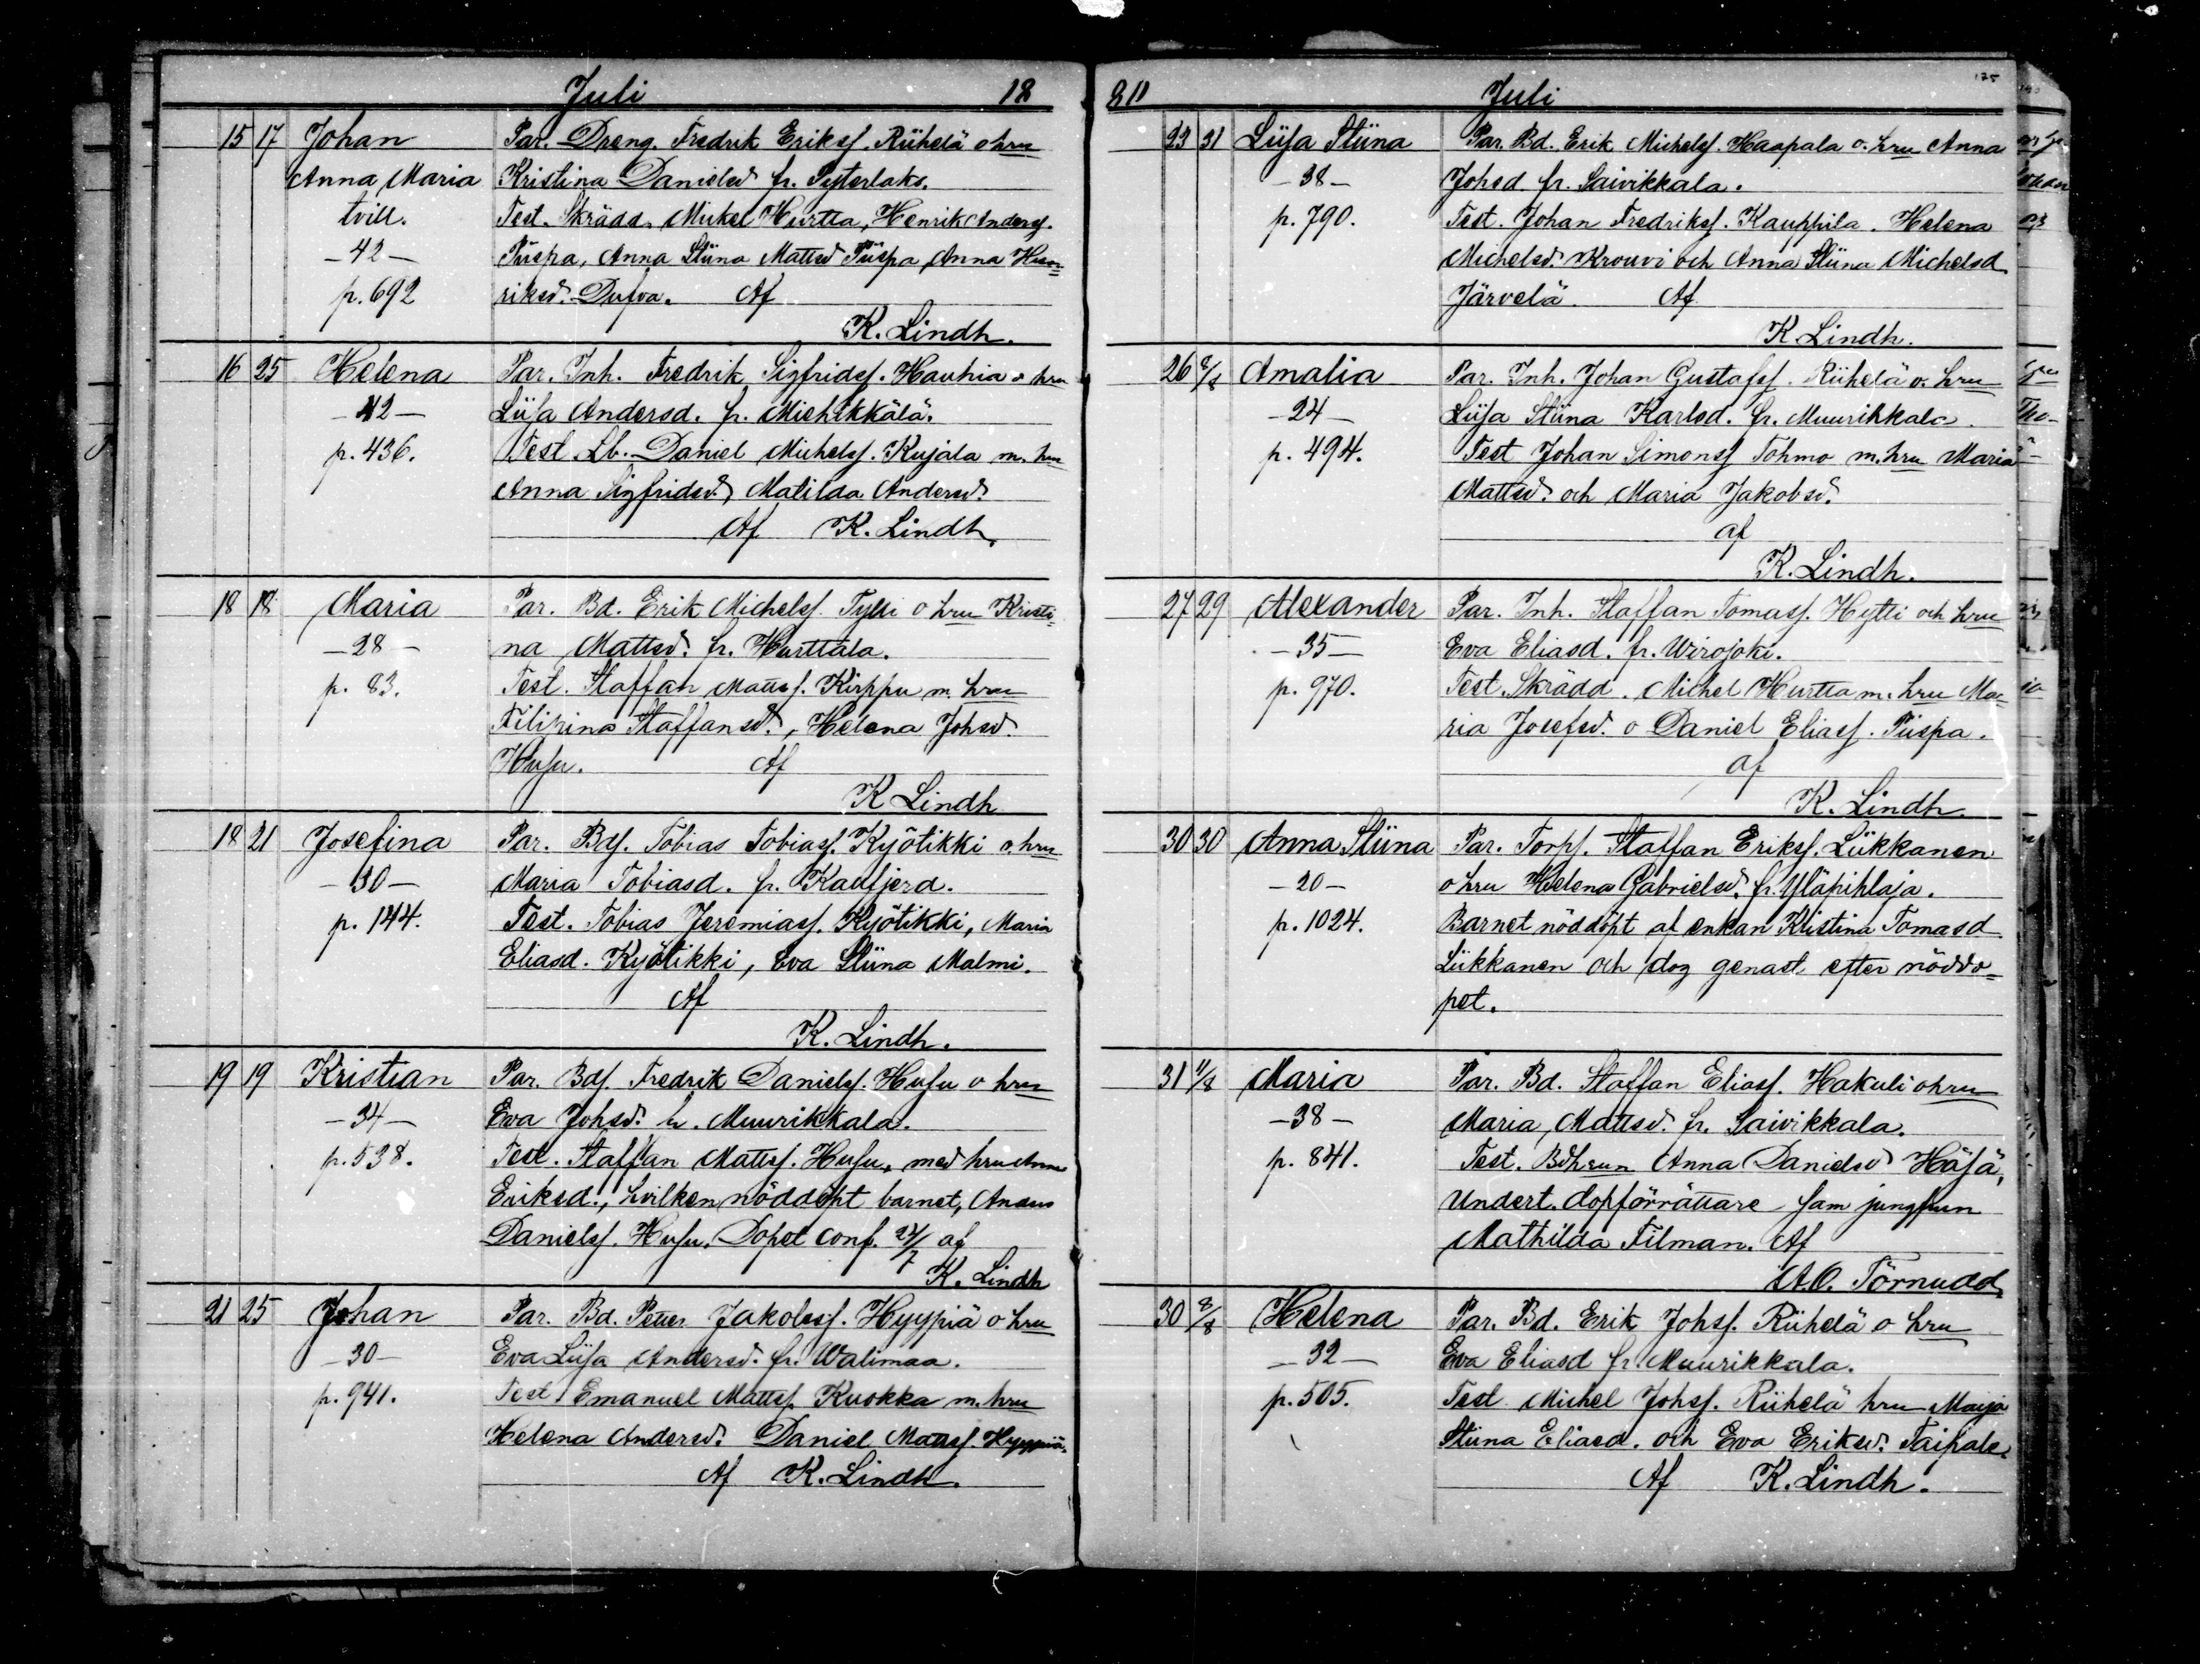 Juli 18
15 17 Johan Par. Dreng. Fredrik Eriksf. Riihelä o hru
Anna Maria Kristina Danielsd. fr. Pyterlaks.
tvill. Test. Skrädd. Mickel Hurtta, Henrik Andersf.
-42- Piispa, Anna Stiina Mattsd Piispa, Anna Hen=
p. 692 riksd. Dufva. Af
K. Lindh.
16 25 Helena Par. Inh. Fredrik Sigfridsf. Hauhia o hru
-42- Liisa Andersd. fr. Miehikkälä.
p. 436. Test. Lb. Daniel Michelsf. Kujala m. hru
Anna Sigfridsd, Matilda Andersd.
Af K. Lindh.
18 18 Maria Par. Bd. Erik Michelsf. Tylli o hru Kristi=
-28- na Mattsd. fr. Hurttala.
p. 83. Test. Staffan Mattsf. Kirppu m. hru
Filipina Staffansd., Helena Johsd.
Husu. Af
K Lindh
18 21 Josefina Par. Bdf. Tobias Tobiasf. Kyötikki o. hru
-30- Maria Tobiasd. fr. Kalfjerd.
p. 144. Test. Tobias Jeremiasf. Kyötikki, Maria
Eliasd. Kyötikki, Eva Stiina Malmi.
Af
K. Lindh.
19 19 Kristian Par. Bdf. Fredrik Danielsf. Husu o hru
-34- Eva Johsd. fr. Muurikkala.
p. 538. Test. Staffan Mattsf. Husu, med hru Anna
Eriksd., hvilken nöddöpt barnet, Anders
Danielsf. Husu. Dopet conf. af
K. Lindh
21 25 Johan Par. Bd. Petter Jakobsf. Hyypiä o hru
-30- Eva Liisa Andersd. fr. Walimaa.
p. 941. Test Emanuel Mattsf. Kuokka m. hru
Helena Andersd. Daniel Mattsf. Hyypiä.
Af K. Lindh.
80 Juli 125
23 31 Liisa Stiina Par. Bd. Erik Michelsf. Haapala o. hru Anna
-38- Johsd fr. Saivikkala.
p. 790. Test. Johan Fredriksf. Kauppila. Helena
Michelsd. Krouvi och Anna Stiina Michelsd
Järvelä Af
K. Lindh.
26 8/8 Amalia Par. Inh. Johan Gustafsf. Riihelä o. hru
-24- Liisa Stiina Karlsd. fr. Muurikkala.
p. 494. Test Johan Simonsf Tohmo m. hru Maria
Mattsd. och Maria Jakobsd.
af
K. Lindh.
27 29 Alexander Par. Inh. Staffan Tomasf. Hytti och hru
-35- Eva Eliasd. fr. Wirojoki.
p. 970. Test. Skrädd. Michel Hurtta m. hru Ma=
ria Josefsd. o Daniel Eliasf. Piispa.
af
K. Lindh.
30 30 Anna Stiina Par. Torpf. Staffan Eriksf. Liikkanen
-20- o hru Helena Gabrielsd. fr. Yläpihlaja.
p. 1024. Barnet nöddöpt af enkan Kristina Tomasd
Liikkanen och dog genast efter nöddo=
pet.
31 11/8 Maria Par. Bd. Staffan Eliasf. Hakuli o hru
-38- Maria Mattsd. fr. Saivikkala.
p. 841. Test. Bdhrun Anna Danielsd Häsä,
Undert. dopförrättare sam jungfrun
Mathilda Filman. Af
A.O. Törnudd.
30 8/8 Helena Par. Bd. Erik Johsf. Riihelä o hru
-32- Eva Eliasd fr Muurikkala.
p. 505. Test Michel Johsf. Riihelä hru Maija
Stiina Eliasd. och Eva Eriksd. Taipale.
Af K. Lindh.